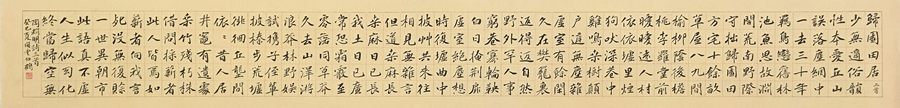 歸園田居 三首
少無適俗韻
性本愛丘山
誤落塵網中
一去三十年
羈鳥戀舊林
池魚思故淵
開荒南野際
守拙歸園田
方宅十餘畝
草屋八九間
榆柳蔭後簷
桃李羅堂前
曖曖遠人村
依依墟里煙
狗吠深巷中
雞鳴桑樹顛
戶庭無塵雜
虛室有餘閒
久在樊籠裏
復得返自然
野外罕人事
窮巷寡輪鞅
白日掩荊扉
虛室絕塵想
時復墟曲中
披草共來往
相見無雜言
但道桑麻長
桑麻日已長
我土日已廣
常恐霜霰至
零落同草莽
久去山澤游
浪莽林野娛
試攜子姪輩
披榛步荒墟
徘徊丘壟間
依依昔人居
井竈有遺處
桑竹殘朽株
借問採薪者
此人皆焉如
薪者向我言
死沒無復餘
一世異朝市
此語真不虛
人生似幻化
終當歸空無
陶淵明詩三首